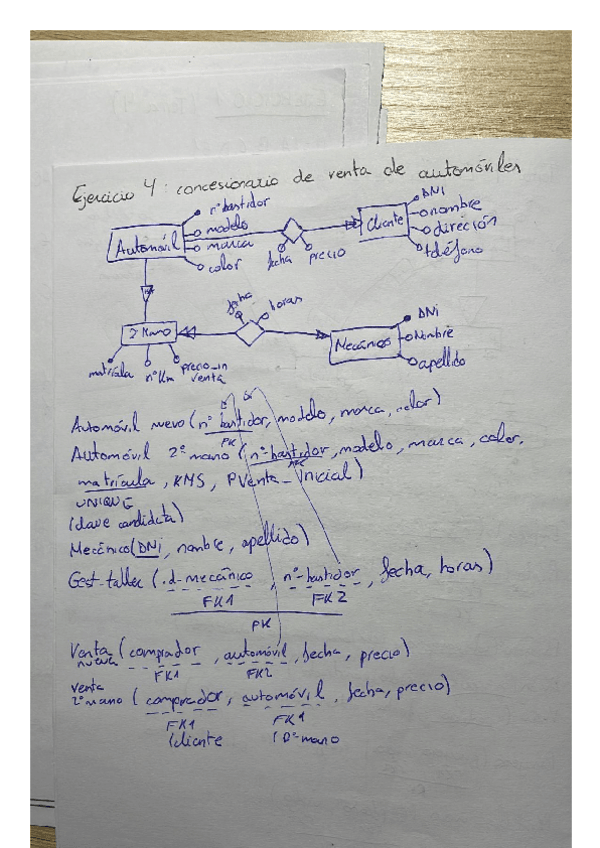 Ejercicio 4: concesionario de venta de automóviles
nº bastidor
modelo
Automóvil
marca
color
fecha
precio
Cliente
DNI
nombre
dirección
teléfono
2ª mano
matrícula
nº Km
precio_in
venta
fecha
horas
Mecánico
DNI
Nombre
apellido
Automóvil nuevo (nº bastidor, modelo, marca, color)
PK
Automóvil 2ª mano (nº-bastidor, modelo, marca, color,
matrícula, KMS, PVenta_inicial)
UNIQUE
(clave candidata)
Mecánico(DNI, nombre, apellido)
Gest-taller (id-mecánico, nº-bastidor, fecha, horas)
FK1 FK2
PK
Venta nueva (comprador, automóvil, fecha, precio)
FK1 FK2
venta 2ª mano (comprador, automóvil, fecha, precio)
FK1 FK1
(cliente